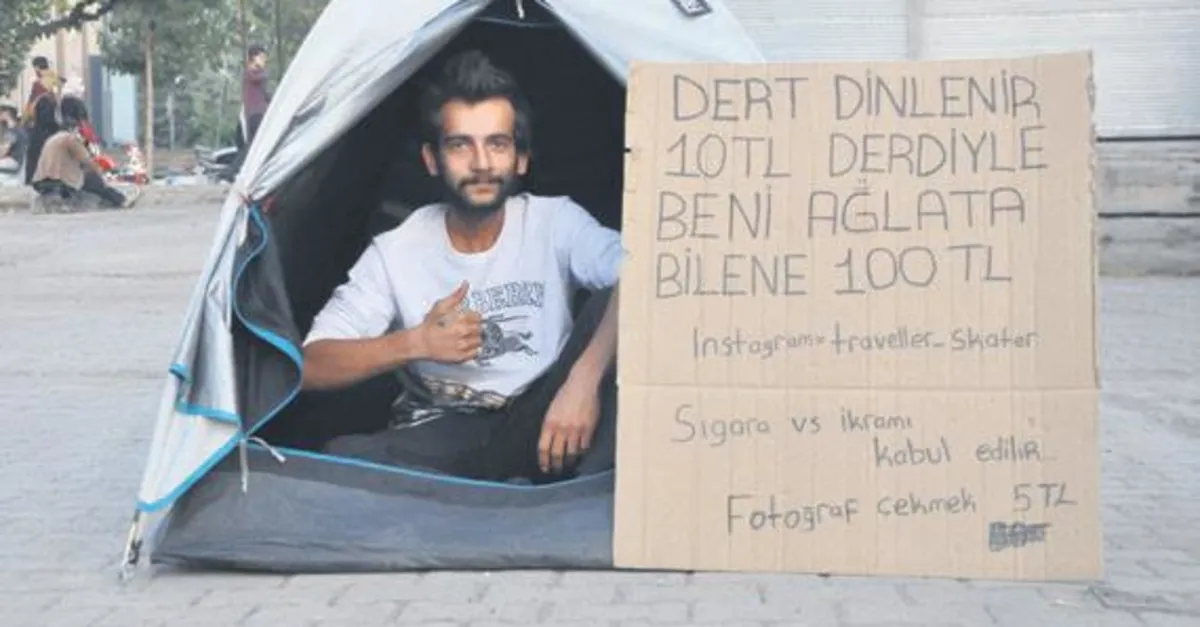 DERT DİNLENİR
10TL DERDİYLE
BENİ AĞLATA
BİLENE 100 TL
Instagram= traveller_skater
Sigara vs ikramı
kabul edilir
Fotoğraf çekmek 5TL